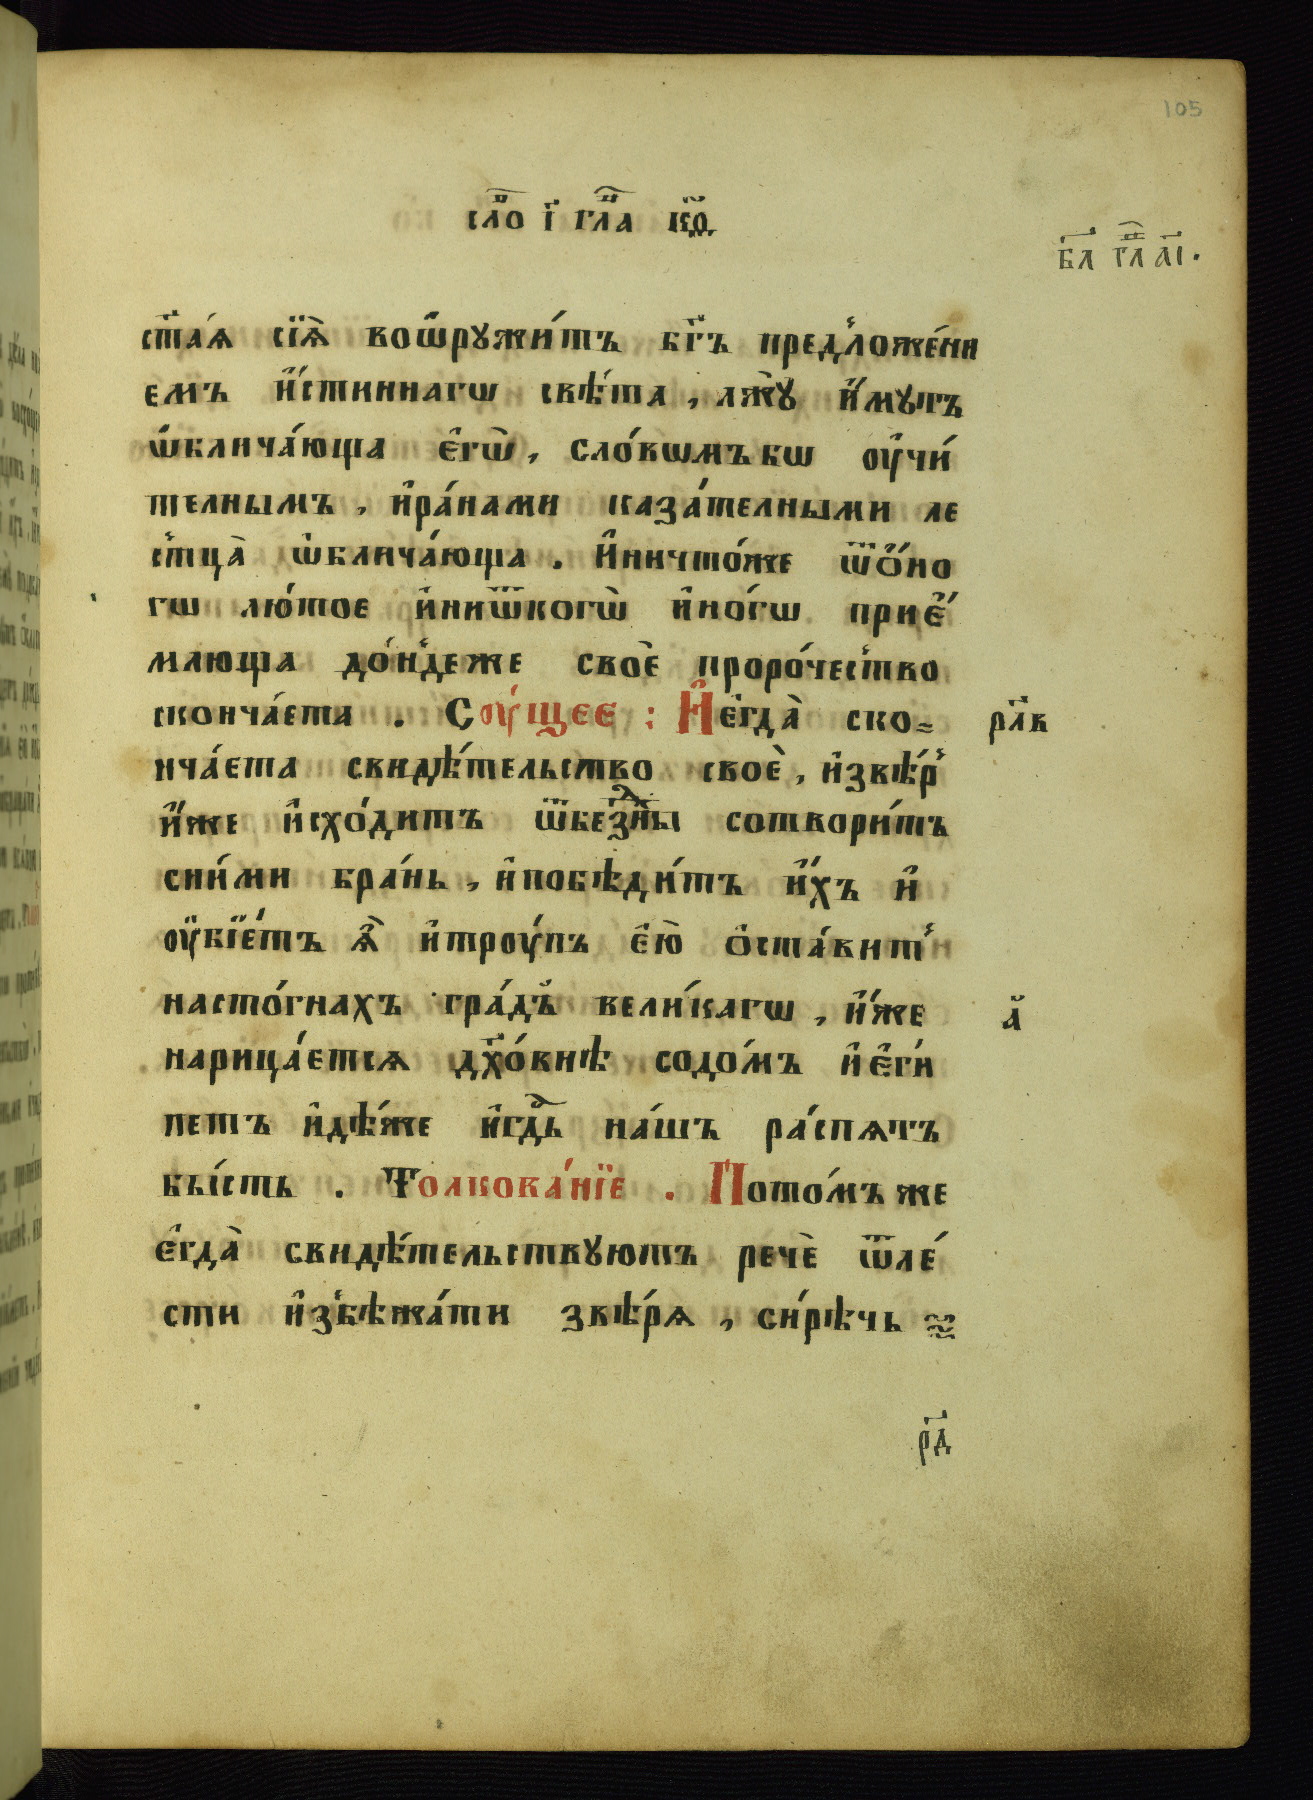 105
сло́ і҃ гла́ к҃д
бл҃ гл҃ аі҃.
ст҃а́ѧ сїѧ̀ воѡ҆ружи́тъ бг҃ъ предложе́ни
емъ и҆́стиннагѡ свѣ́та, лжꙋ̀ и҆́мꙋтъ
ѡ҆блича́юща є҆гѡ̀, сло́вѡмъбѡ оу҆чи́
телнымъ, и҆ра́нами каза́телными ле
стца̀ ѡ҆блича́юща. И҆ничто́же ѿо́но
гѡ лю́тое и҆ниѿкогѡ̀ и҆но́гѡ прие́
млюща до́ндеже своѐ проро́чество
сконча́ета. Соу́щее: И҆є҆гда̀ ско=
нча́ета свидѣ́тельство своѐ, и҆звѣ́р
и҆́же и҆схо́дитъ ѿбе́здны сотвори́тъ
сни́ми бра́нь, и҆побѣди́тъ и҆́хъ и҆
оу҆бїе́тъ ѧ҆̀ и҆троу́пъ є҆ю̀ ѻ҆ста́вит
насто́гнахъ гра́дъ вели́кагѡ, и҆́же
нарица́етсѧ дх҃о́внѣ содо́мъ и҆є҆гѵ́
петъ и҆дѣ́же и҆гд҃ь на́шъ ра́спѧтъ
бы́сть. Толкова́нїе. Пото́мъ же
є҆гда̀ свидѣ́тельствуютъ речѐ ѿле́
сти и҆збѣжа́ти звѣ́рѧ, си́рѣчь
рл҃в
а҃
рд҃